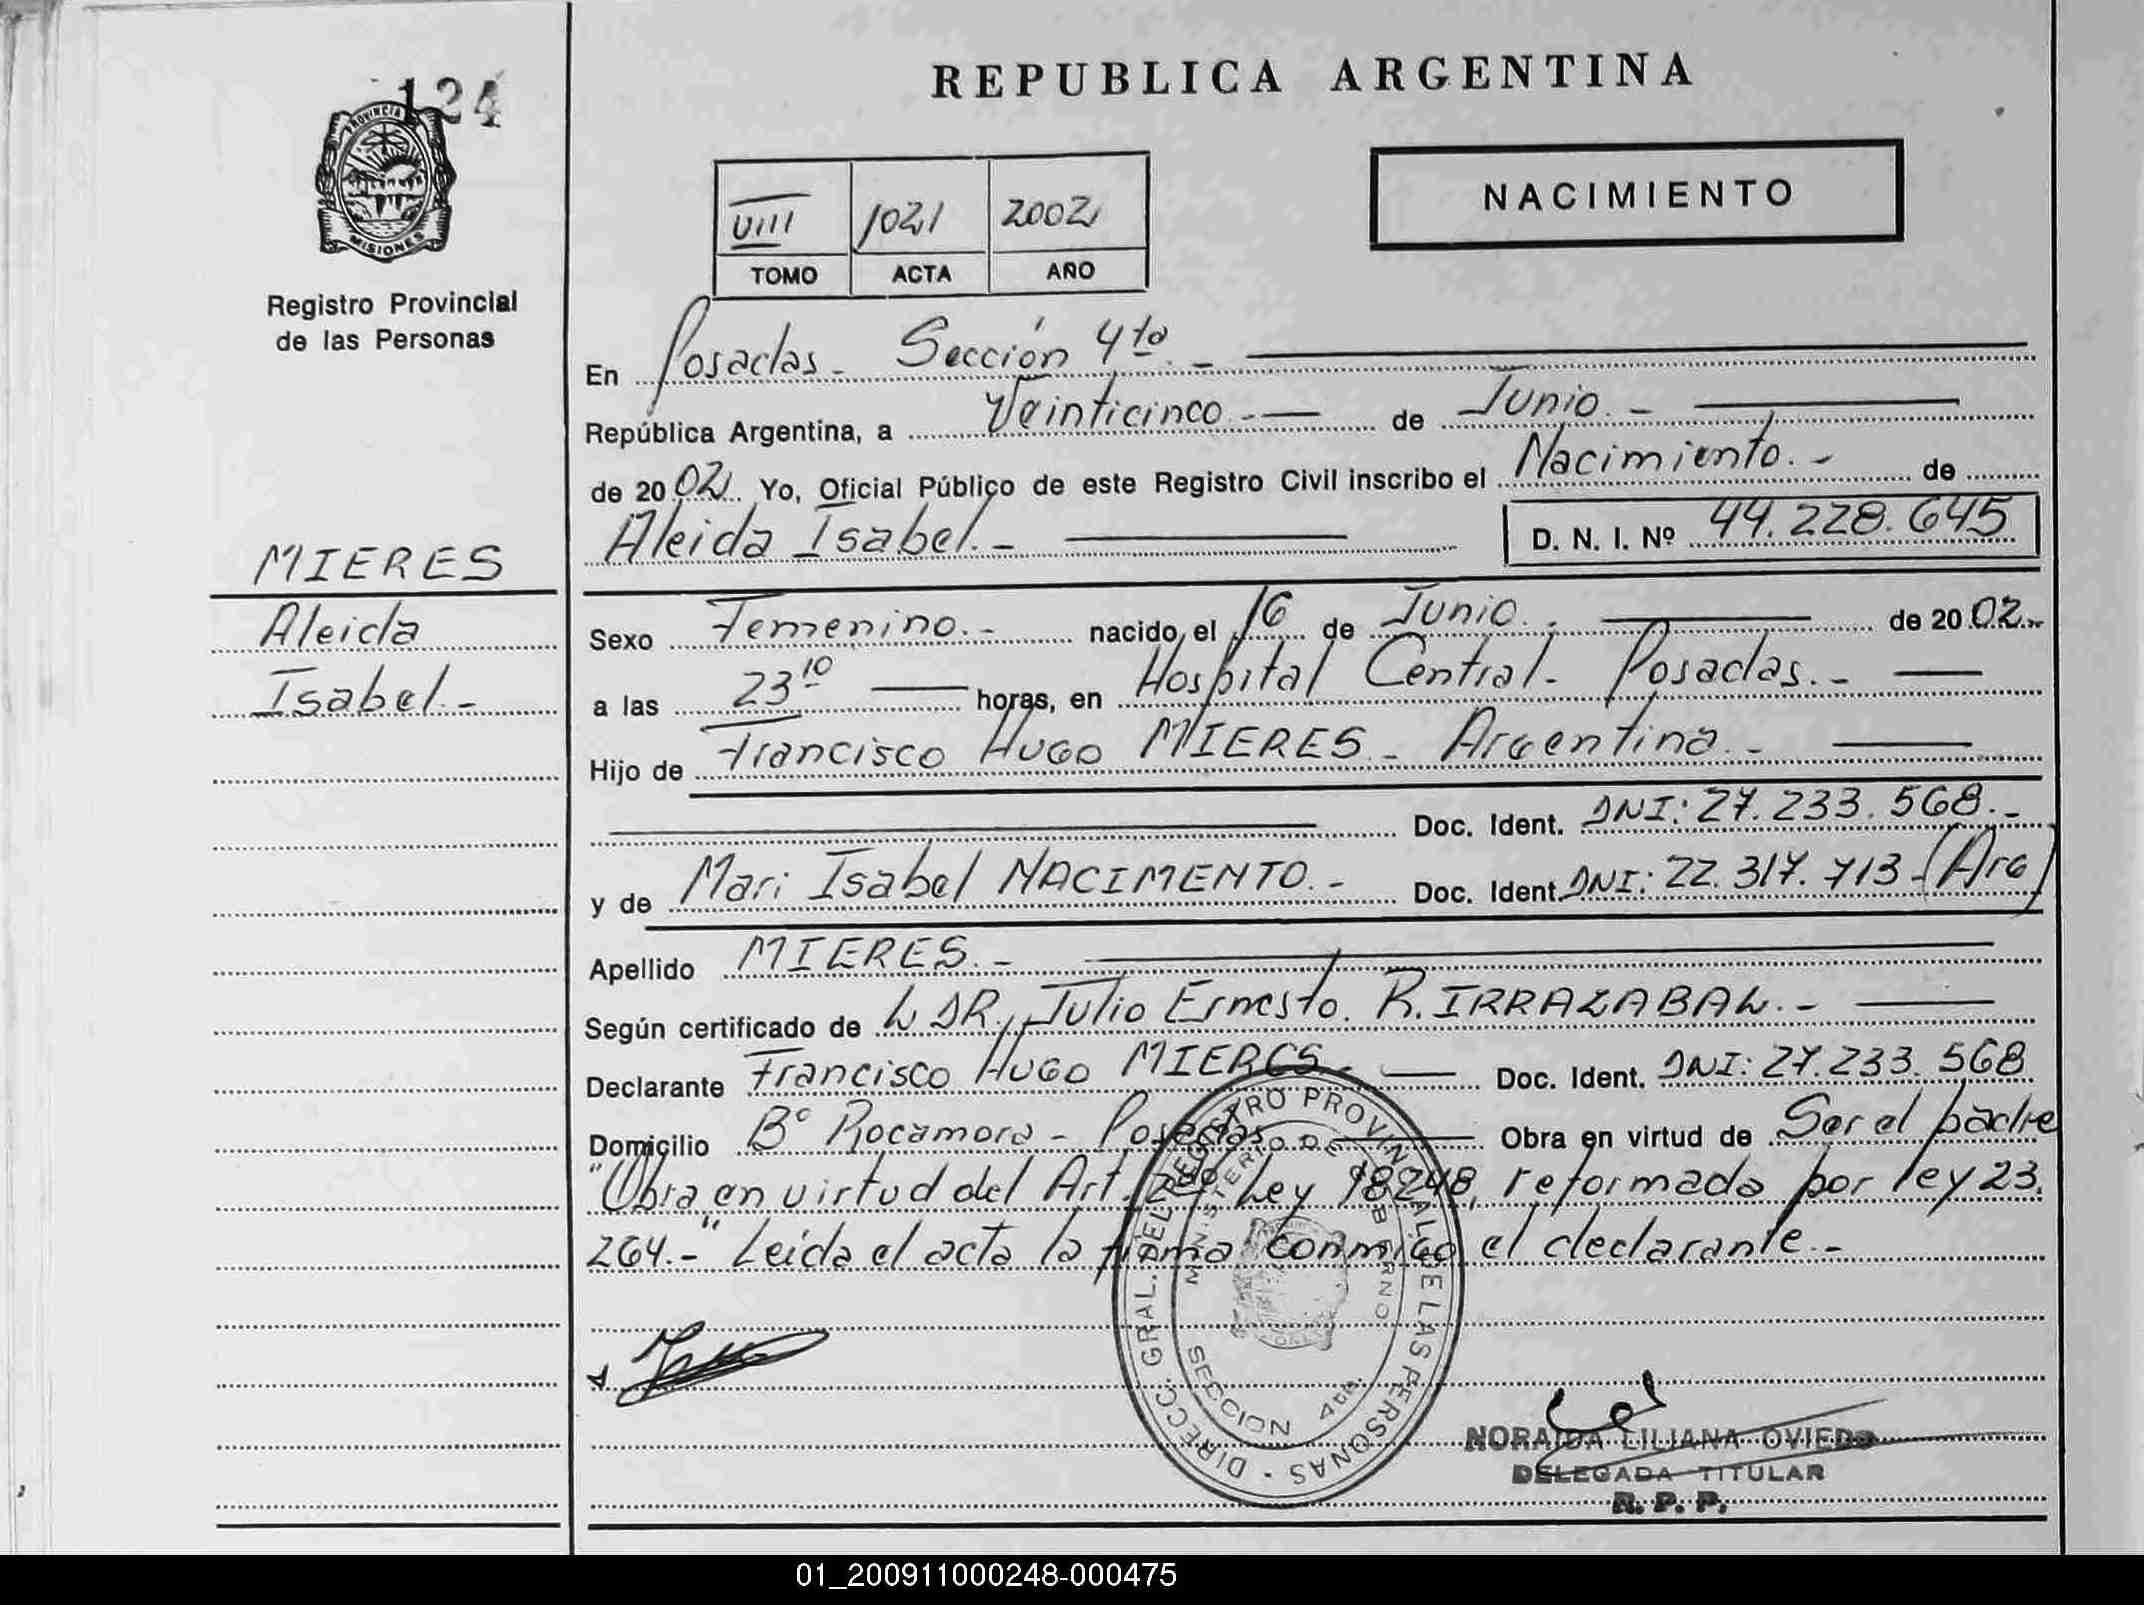 124
PROVINCIA
MISIONES
Registro Provincial
de las Personas
MIERES
Aleida
Isabel.-
REPUBLICA ARGENTINA
NACIMIENTO
VIII 1021 2002
TOMO ACTA AÑO
En Posadas - Sección 4ta. -
República Argentina, a Veinticinco.- de Junio. -
de 2002. Yo, Oficial Público de este Registro Civil inscribo el Nacimiento. - de
Aleida Isabel. - D. N. I. Nº 44.228.645
Sexo Femenino. - nacido, el 16 de Junio. de 2002.
a las 23 10 horas, en Hospital Central - Posadas. -
Hijo de Francisco Hugo MIERES - Argentina. -
Doc. Ident. DNI: 27.233.568. -
y de Mari Isabel NACIMENTO. - Doc. Ident. DNI: 22.317.713 - (Arg)
Apellido MIERES. -
Según certificado de L DR. Julio Ernesto. R. IRRAZABAL. -
Declarante Francisco Hugo MIERES - Doc. Ident. DNI: 27.233.568
Domicilio Bº Rocamora - Posadas Obra en virtud de Ser el padre
"Obra en virtud del Art. Ley 18248, reformada por ley 23.
264.-" Leida el acta la firma conmigo el declarante. -
DIRECC. GRAL. DEL REGISTRO PROVINCIAL DE LAS PERSONAS
MINISTERIO DE GOBIERNO
SECCION 4ta
NORAIDA LILIANA OVIEDO
DELEGADA TITULAR
R. P. P.
01_200911000248-000475